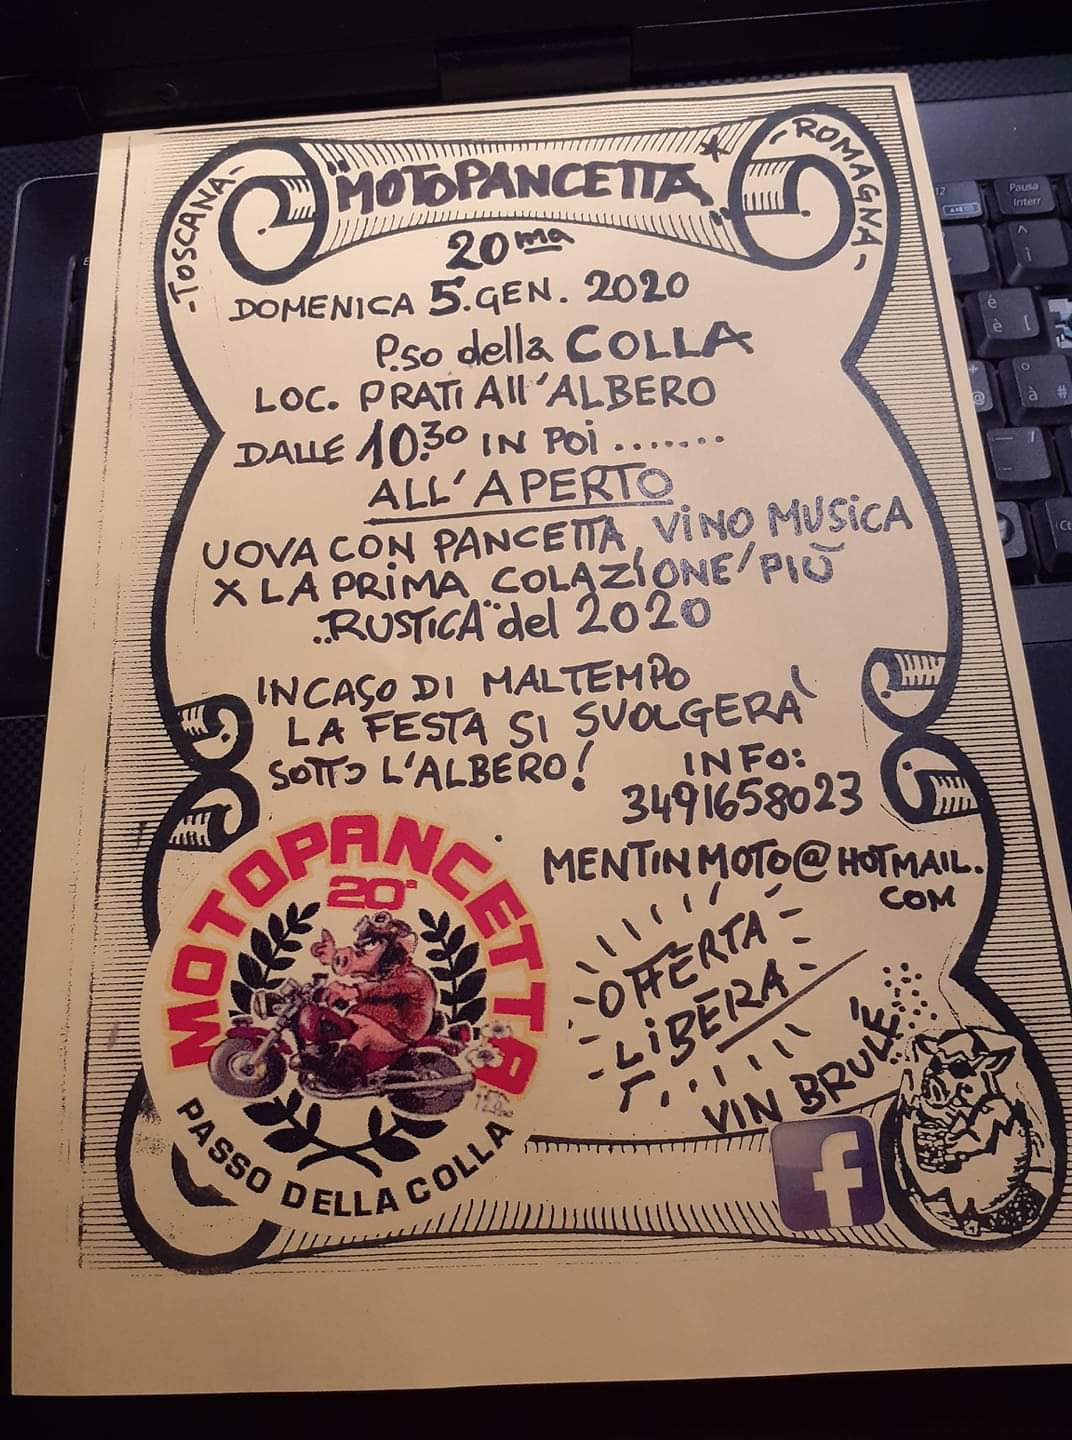 -TOSCANA-
"MOTOPANCETTA"*
-ROMAGNA-
20ma
DOMENICA 5. GEN. 2020
P.so della COLLA
LOC. PRATI All'ALBERO
DALLE 10.30 IN POI ........
ALL'APERTO
UOVA CON PANCETTA, VINO MUSICA
X LA PRIMA COLAZIONE PIÙ
"RUSTICA" del 2020
IN CASO DI MALTEMPO
LA FESTA SI SVOLGERA'
SOTTO L'ALBERO!
INFO:
3491658023
MENTINMOTO@HOTMAIL.
COM
MOTOPANCETTA
20ª
PASSO DELLA COLLA
OFFERTA
LIBERA
VIN BRULÉ
f
Pausa
Interr
é
è
[
@
°
à
#